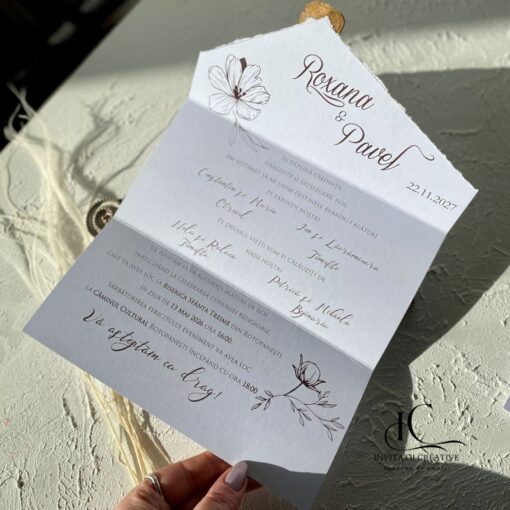 Roxana
&
Pavel
22.11.2027
ÎN DEPLINĂ CREDINȚĂ,
DRAGOSTE ȘI ÎNȚELEGERE, NOI,
AM HOTĂRÂT SĂ NE UNIM DESTINELE AVÂNDU-I ALĂTURI
PE PĂRINȚII NOȘTRI
Constantin și Maria
Ion și Lăcrămioara
Timofte
PE DRUMUL VIEȚII VOM FI CĂLĂUZIȚI DE
NAȘII NOȘTRI
Nelu și Raluca
Timofte
Petrică și Mihaela
VĂ INVITĂM SĂ VĂ BUCURAȚI ALĂTURI DE NOI
PARTICIPÂND LA CELEBRAREA CUNUNIEI RELIGIOASE
CARE VA AVEA LOC LA BISERICA SFANTA TREIME DIN ROTOPĂNEȘTI,
ÎN ZIUA DE 13 MAI 2026 ORA 16:00.
SĂRBĂTORIREA FERICITULUI EVENIMENT VA AVEA LOC
LA CĂMINUL CULTURAL ROTOPĂNEȘTI ÎNCEPÂND CU ORA 18:00
Vă așteptăm cu drag!
IC
INVITATII CREATIVE